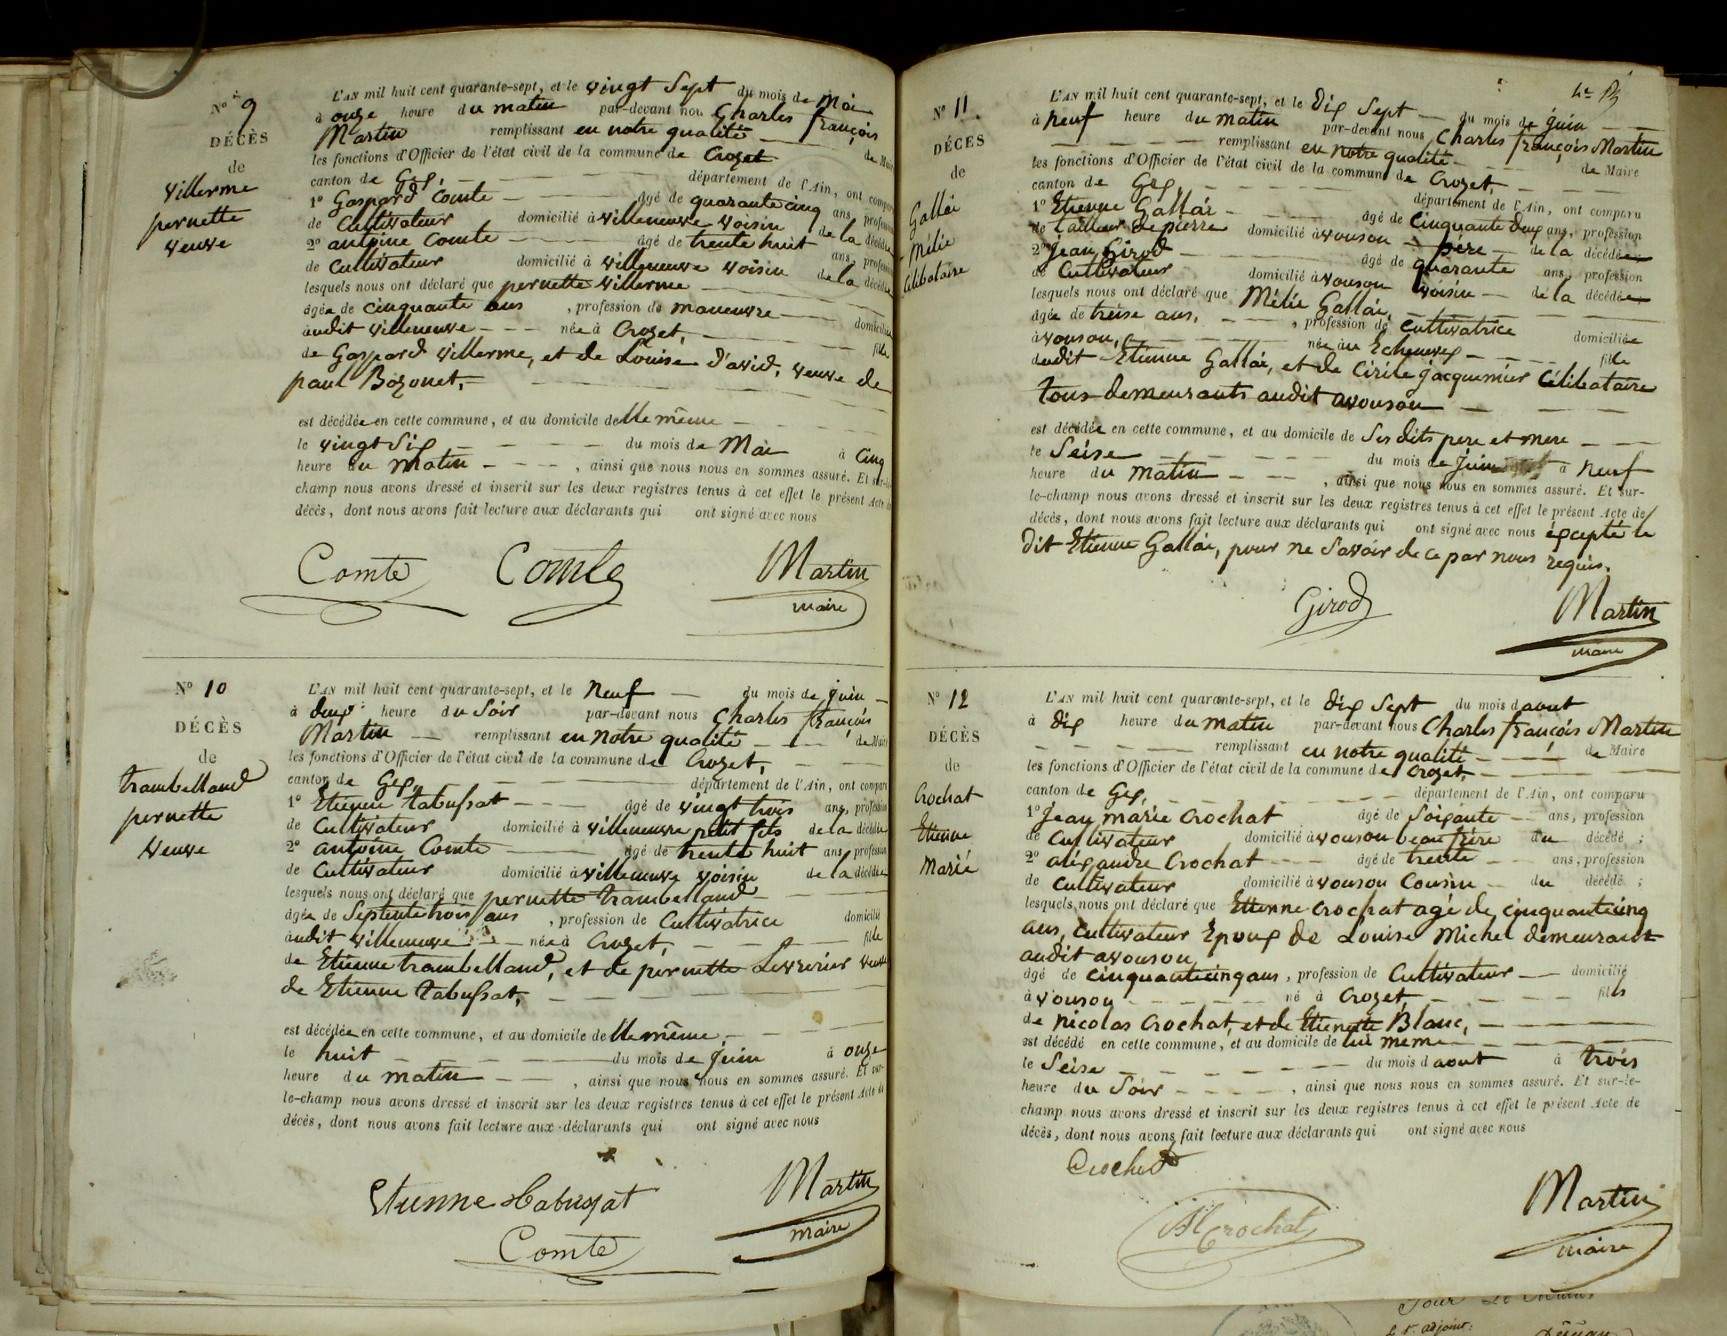 N° 9
DÉCÈS
de
Villerme
pernette
veuve
L'AN mil huit cent quarante-sept, et le vingt Sept du mois de Mai
à onze heure du matin par-devant nou Charles françois
Martin remplissant en notre qualité de Maire
les fonctions d'Officier de l'état civil de la commune de Crozet
canton de Gex, département de l'Ain, ont comparu
1° Gaspard Comte âgé de quarante cinq ans, profession
de Cultivateur domicilié à villeneuve voisin de la décédée
2° antoine Comte âgé de trente huit ans, profession
de Cultivateur domicilié à villeneuve voisin de la décédée
lesquels nous ont déclaré que pernette villerme
âgée de cinquante ans, profession de maneuvre domiciliée
audit villeneuve née à Crozet, fille
de Gaspard villerme, et de Louise d'avid, veuve de
paul Bozonet,
est décédée en cette commune, et au domicile delle même
le vingt Six du mois de Mai à cinq
heure du matin, ainsi que nous nous en sommes assuré. Et sur-le-
champ nous avons dressé et inscrit sur les deux registres tenus à cet effet le présent Acte de
décès, dont nous avons fait lecture aux déclarants qui ont signé avec nous
Comte Comte Martin
maire
N° 10
DÉCÈS
de
trambelland
pernette
veuve
L'AN mil huit cent quarante-sept, et le Neuf du mois de juin
à deux heure du Soir par-devant nous Charles françois
Martin remplissant en notre qualité de Maire
les fonctions d'Officier de l'état civil de la commune de Crozet,
canton de Gex, département de l'Ain, ont comparu
1° Etienne tabussat âgé de vingt trois ans, profession
de Cultivateur domicilié à villeneuve petit fils de la décédée
2° antoine Comte âgé de trente huit ans, profession
de Cultivateur domicilié à villeneuve voisin de la décédée
lesquels nous ont déclaré que pernette trambelland
âgée de Septente trois ans, profession de Cultivatrice domicilié
audit villeneuve née à Crozet, fille
de Etienne trambelland, et de pernette Levrerier veuve
de Etienne tabussat,
est décédée en cette commune, et au domicile delle même,
le huit du mois de juin à onze
heure du matin, ainsi que nous nous en sommes assuré. Et sur-
le-champ nous avons dressé et inscrit sur les deux registres tenus à cet effet le présent Acte de
décès, dont nous avons fait lecture aux déclarants qui ont signé avec nous
Etienne tabussat Martin
Comte maire
N° 11.
DÉCÈS
de
Gallai
Mélie
Célibataire
L'AN mil huit cent quarante-sept, et le dix Sept du mois de juin
à neuf heure du matin par-devant nous Charles françois Martin
remplissant en notre qualité de Maire
les fonctions d'Officier de l'état civil de la commune de Crozet,
canton de Gex, département de l'Ain, ont comparu
1° Etienne Gallai âgé de Cinquante deux ans, profession
de tailleur de pierre domicilié à vouson père de la décédée
2° Jean Girod âgé de quarante ans, profession
de Cultivateur domicilié à vouson voisin de la décédée
lesquels nous ont déclaré que Mélie Gallai,
âgée de treise ans, profession de Cultivatrice domiciliée
à vouson, née au Echenevex fille
dudit Etienne Gallai, et de Cirile jacquemier Célibataire
tous demeurants audit avouson
est décédée en cette commune, et au domicile de Ses dits pere et mere
le Seise du mois de juin à neuf
heure du matin, ainsi que nous nous en sommes assuré. Et sur-
le-champ nous avons dressé et inscrit sur les deux registres tenus à cet effet le présent Acte de
décès, dont nous avons fait lecture aux déclarants qui ont signé avec nous éxcepté le
dit Etienne Gallai, pour ne Savoir de ce par nous requis.
Girod Martin
maire
N° 12
DÉCÈS
de
Crochat
Etienne
Marié
L'AN mil huit cent quarante-sept, et le dix Sept du mois d aout
à dix heure du matin par-devant nous Charles françois Martin
remplissant en notre qualité de Maire
les fonctions d'Officier de l'état civil de la commune de Crozet,
canton de Gex, département de l'Ain, ont comparu
1° Jean marie Crochat âgé de Soixante ans, profession
de Cultivateur domicilié à vouson beau frère du décédé ;
2° aléxandre Crochat âgé de trente ans, profession
de Cultivateur domicilié à vouson Cousin du décédé ;
lesquels nous ont déclaré que Etienne Crochat agé de cinquante cinq
ans, Cultivateur Epoux de Louise Michel demeurant
audit avouson
âgé de cinquante cinq ans, profession de Cultivateur domicilié
à vouson né à Crozet, fils
de Nicolas Crochat, et de Etienette Blanc,
est décédé en cette commune, et au domicile de lui même
le Seise du mois d aout à trois
heure du Soir, ainsi que nous nous en sommes assuré. Et sur-le-
champ nous avons dressé et inscrit sur les deux registres tenus à cet effet le présent Acte de
décès, dont nous avons fait lecture aux déclarants qui ont signé avec nous
Crochat
Crochat Martin
maire